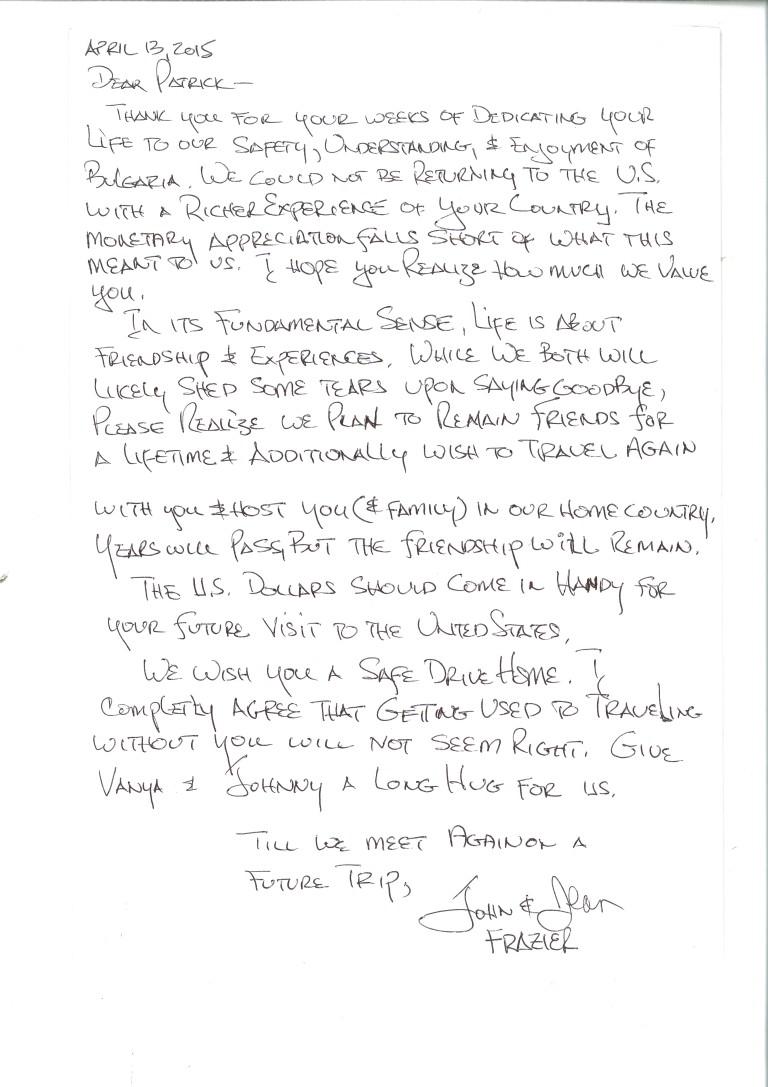 APRIL 13, 2015
DEAR PATRICK—
THANK YOU FOR YOUR WEEKS OF DEDICATING YOUR
LIFE TO OUR SAFETY, UNDERSTANDING, & ENJOYMENT OF
BULGARIA. WE COULD NOT BE RETURNING TO THE U.S.
WITH A RICHER EXPERIENCE OF YOUR COUNTRY. THE
MONETARY APPRECIATION FALLS SHORT OF WHAT THIS
MEANT TO US. I HOPE YOU REALIZE HOW MUCH WE VALUE
YOU.
IN ITS FUNDAMENTAL SENSE, LIFE IS ABOUT
FRIENDSHIP & EXPERIENCES. WHILE WE BOTH WILL
LIKELY SHED SOME TEARS UPON SAYING GOODBYE,
PLEASE REALIZE WE PLAN TO REMAIN FRIENDS FOR
A LIFETIME & ADDITIONALLY WISH TO TRAVEL AGAIN
WITH YOU & HOST YOU (& FAMILY) IN OUR HOME COUNTRY.
YEARS WILL PASS, BUT THE FRIENDSHIP WILL REMAIN.
THE U.S. DOLLARS SHOULD COME IN HANDY FOR
YOUR FUTURE VISIT TO THE UNITED STATES.
WE WISH YOU A SAFE DRIVE HOME. I
COMPLETLY AGREE THAT GETTING USED TO TRAVELING
WITHOUT YOU WILL NOT SEEM RIGHT. GIVE
VANYA & JOHNNY A LONG HUG FOR US.
TILL WE MEET AGAIN ON A
FUTURE TRIP,
JOHN & Jean
FRAZIER